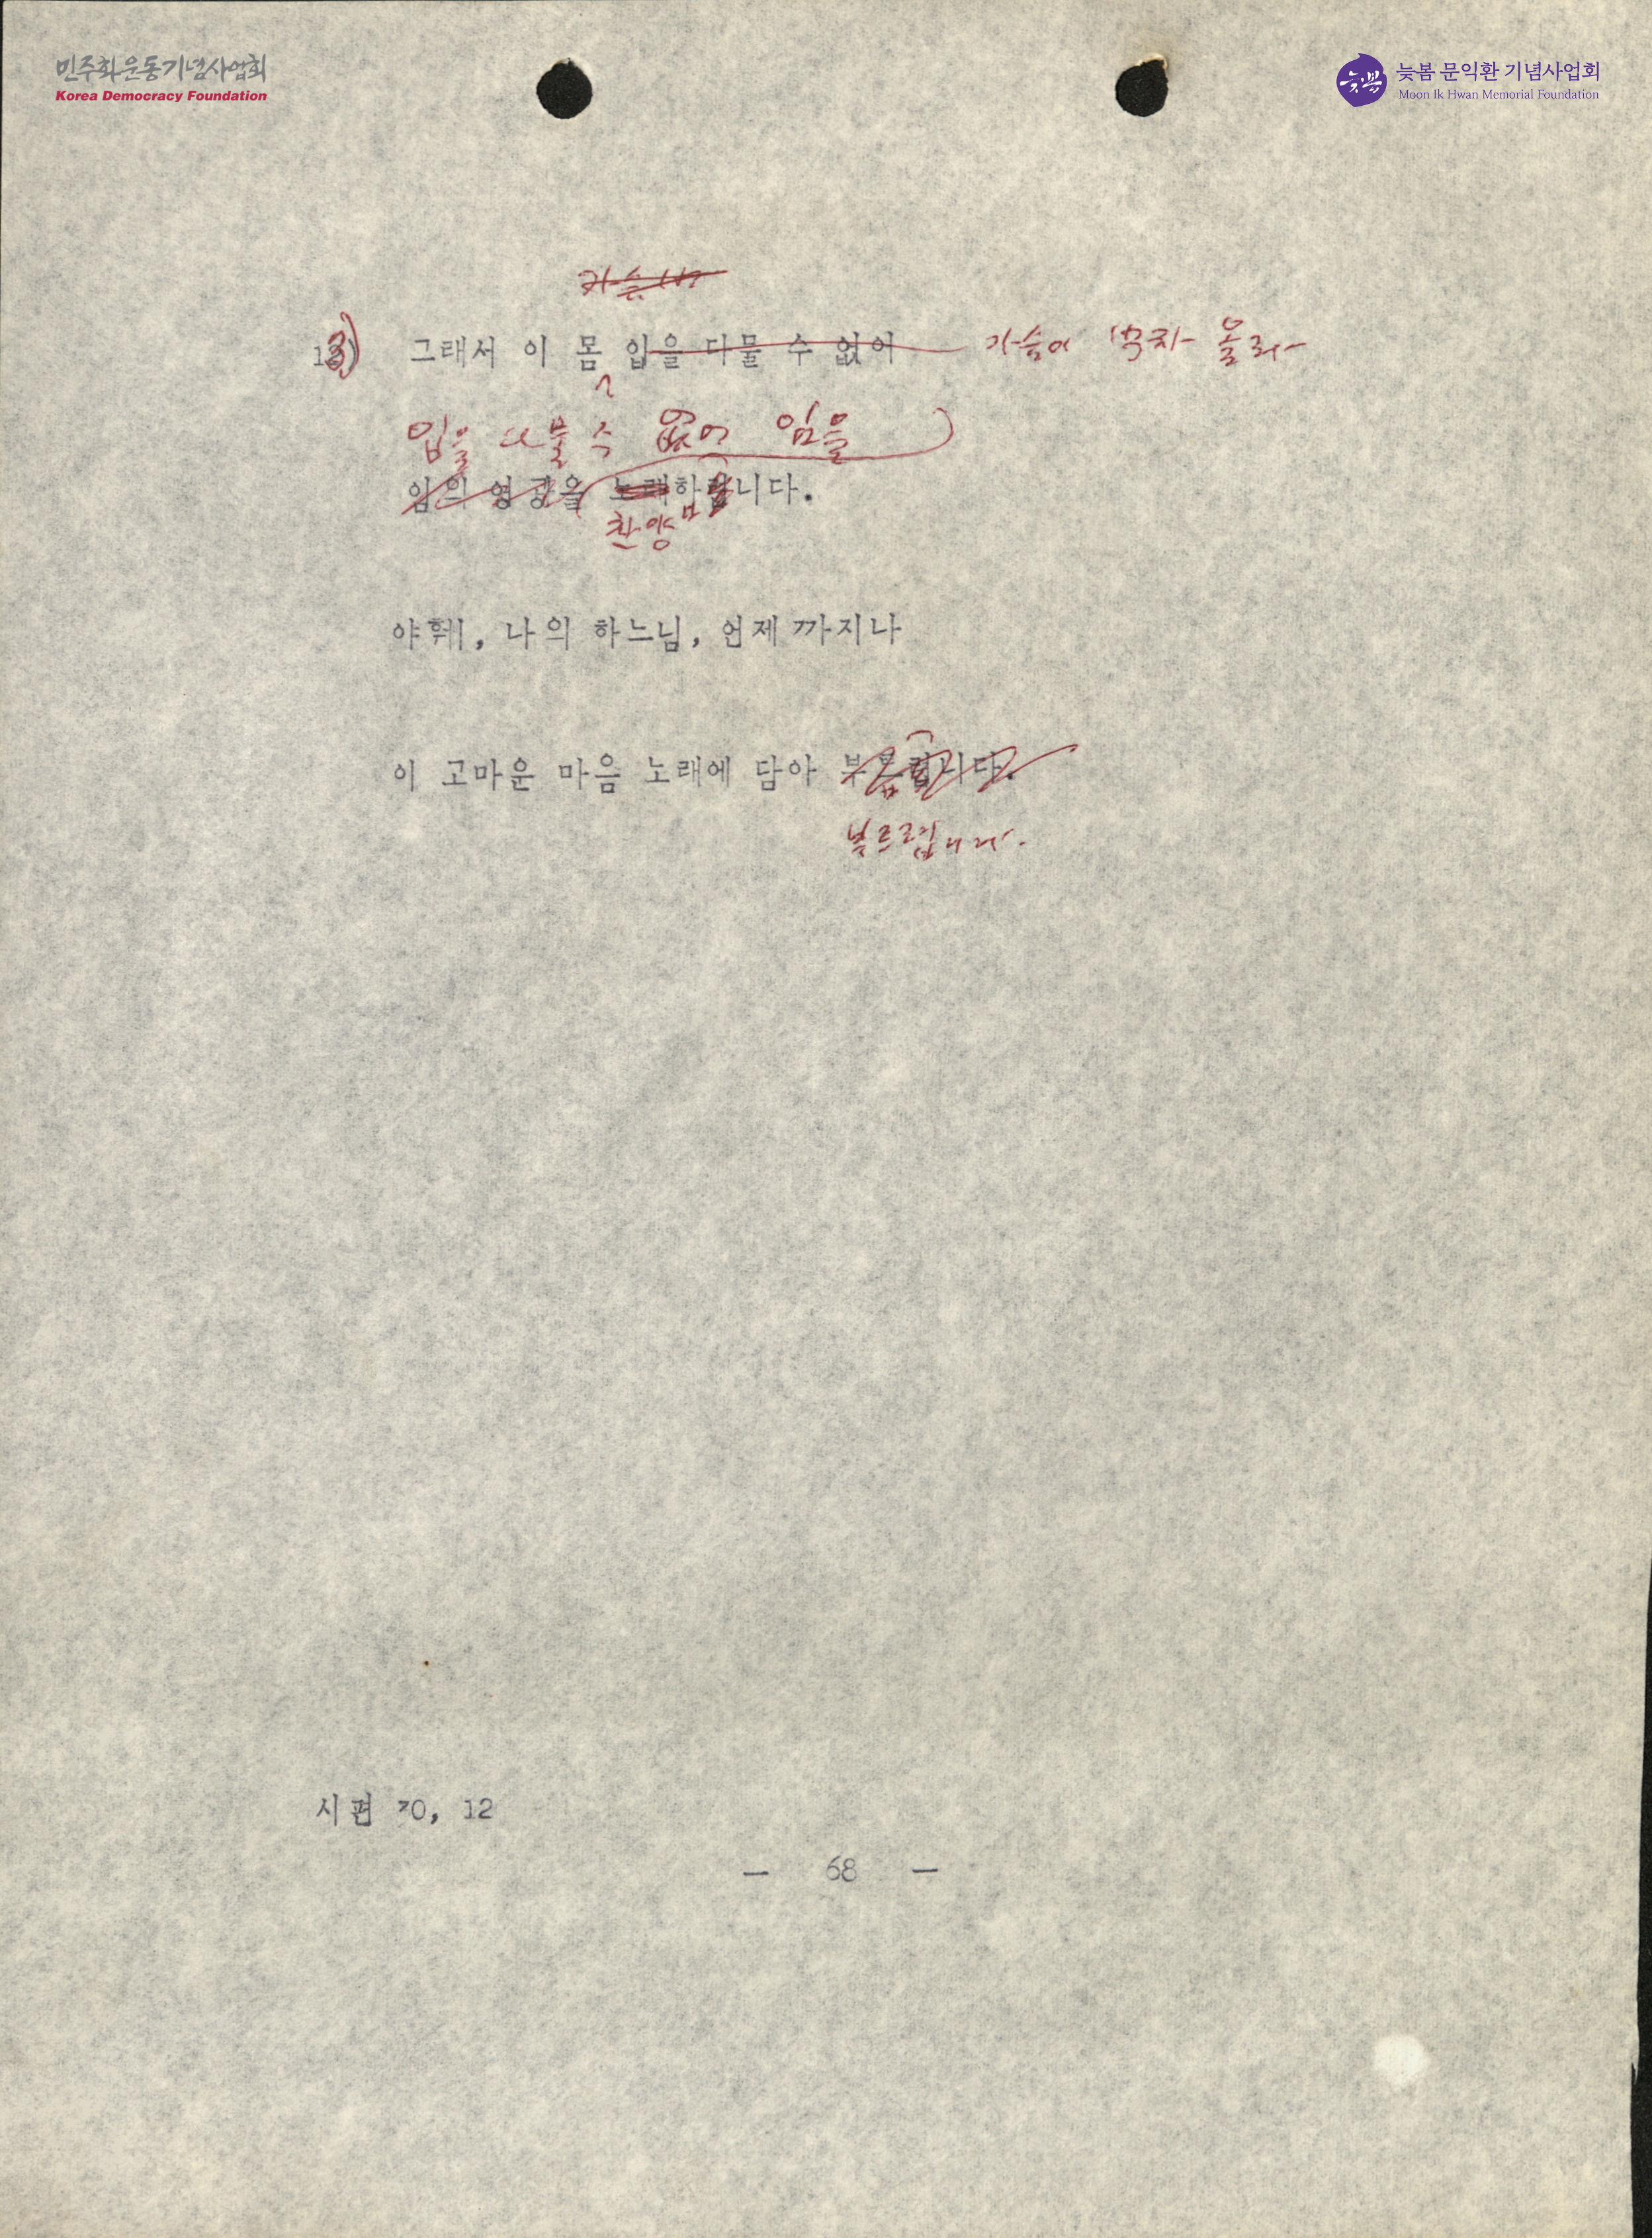 민주화운동기념사업회
Korea Democracy Foundation
늦봄 문익환 기념사업회
Moon Ik Hwan Memorial Foundation
가슴이
13) 그태서 이 몸 입을 다물 수 없어 가슴이 벅차 올라
입을 다물 수 없어 임을
임의 영광을 노래하렵니다.
찬양
야훼, 나의 하느님, 언제까지나
이 고마운 마음 노래에 담아
부르렵니다.
시편 30, 12
— 68 —